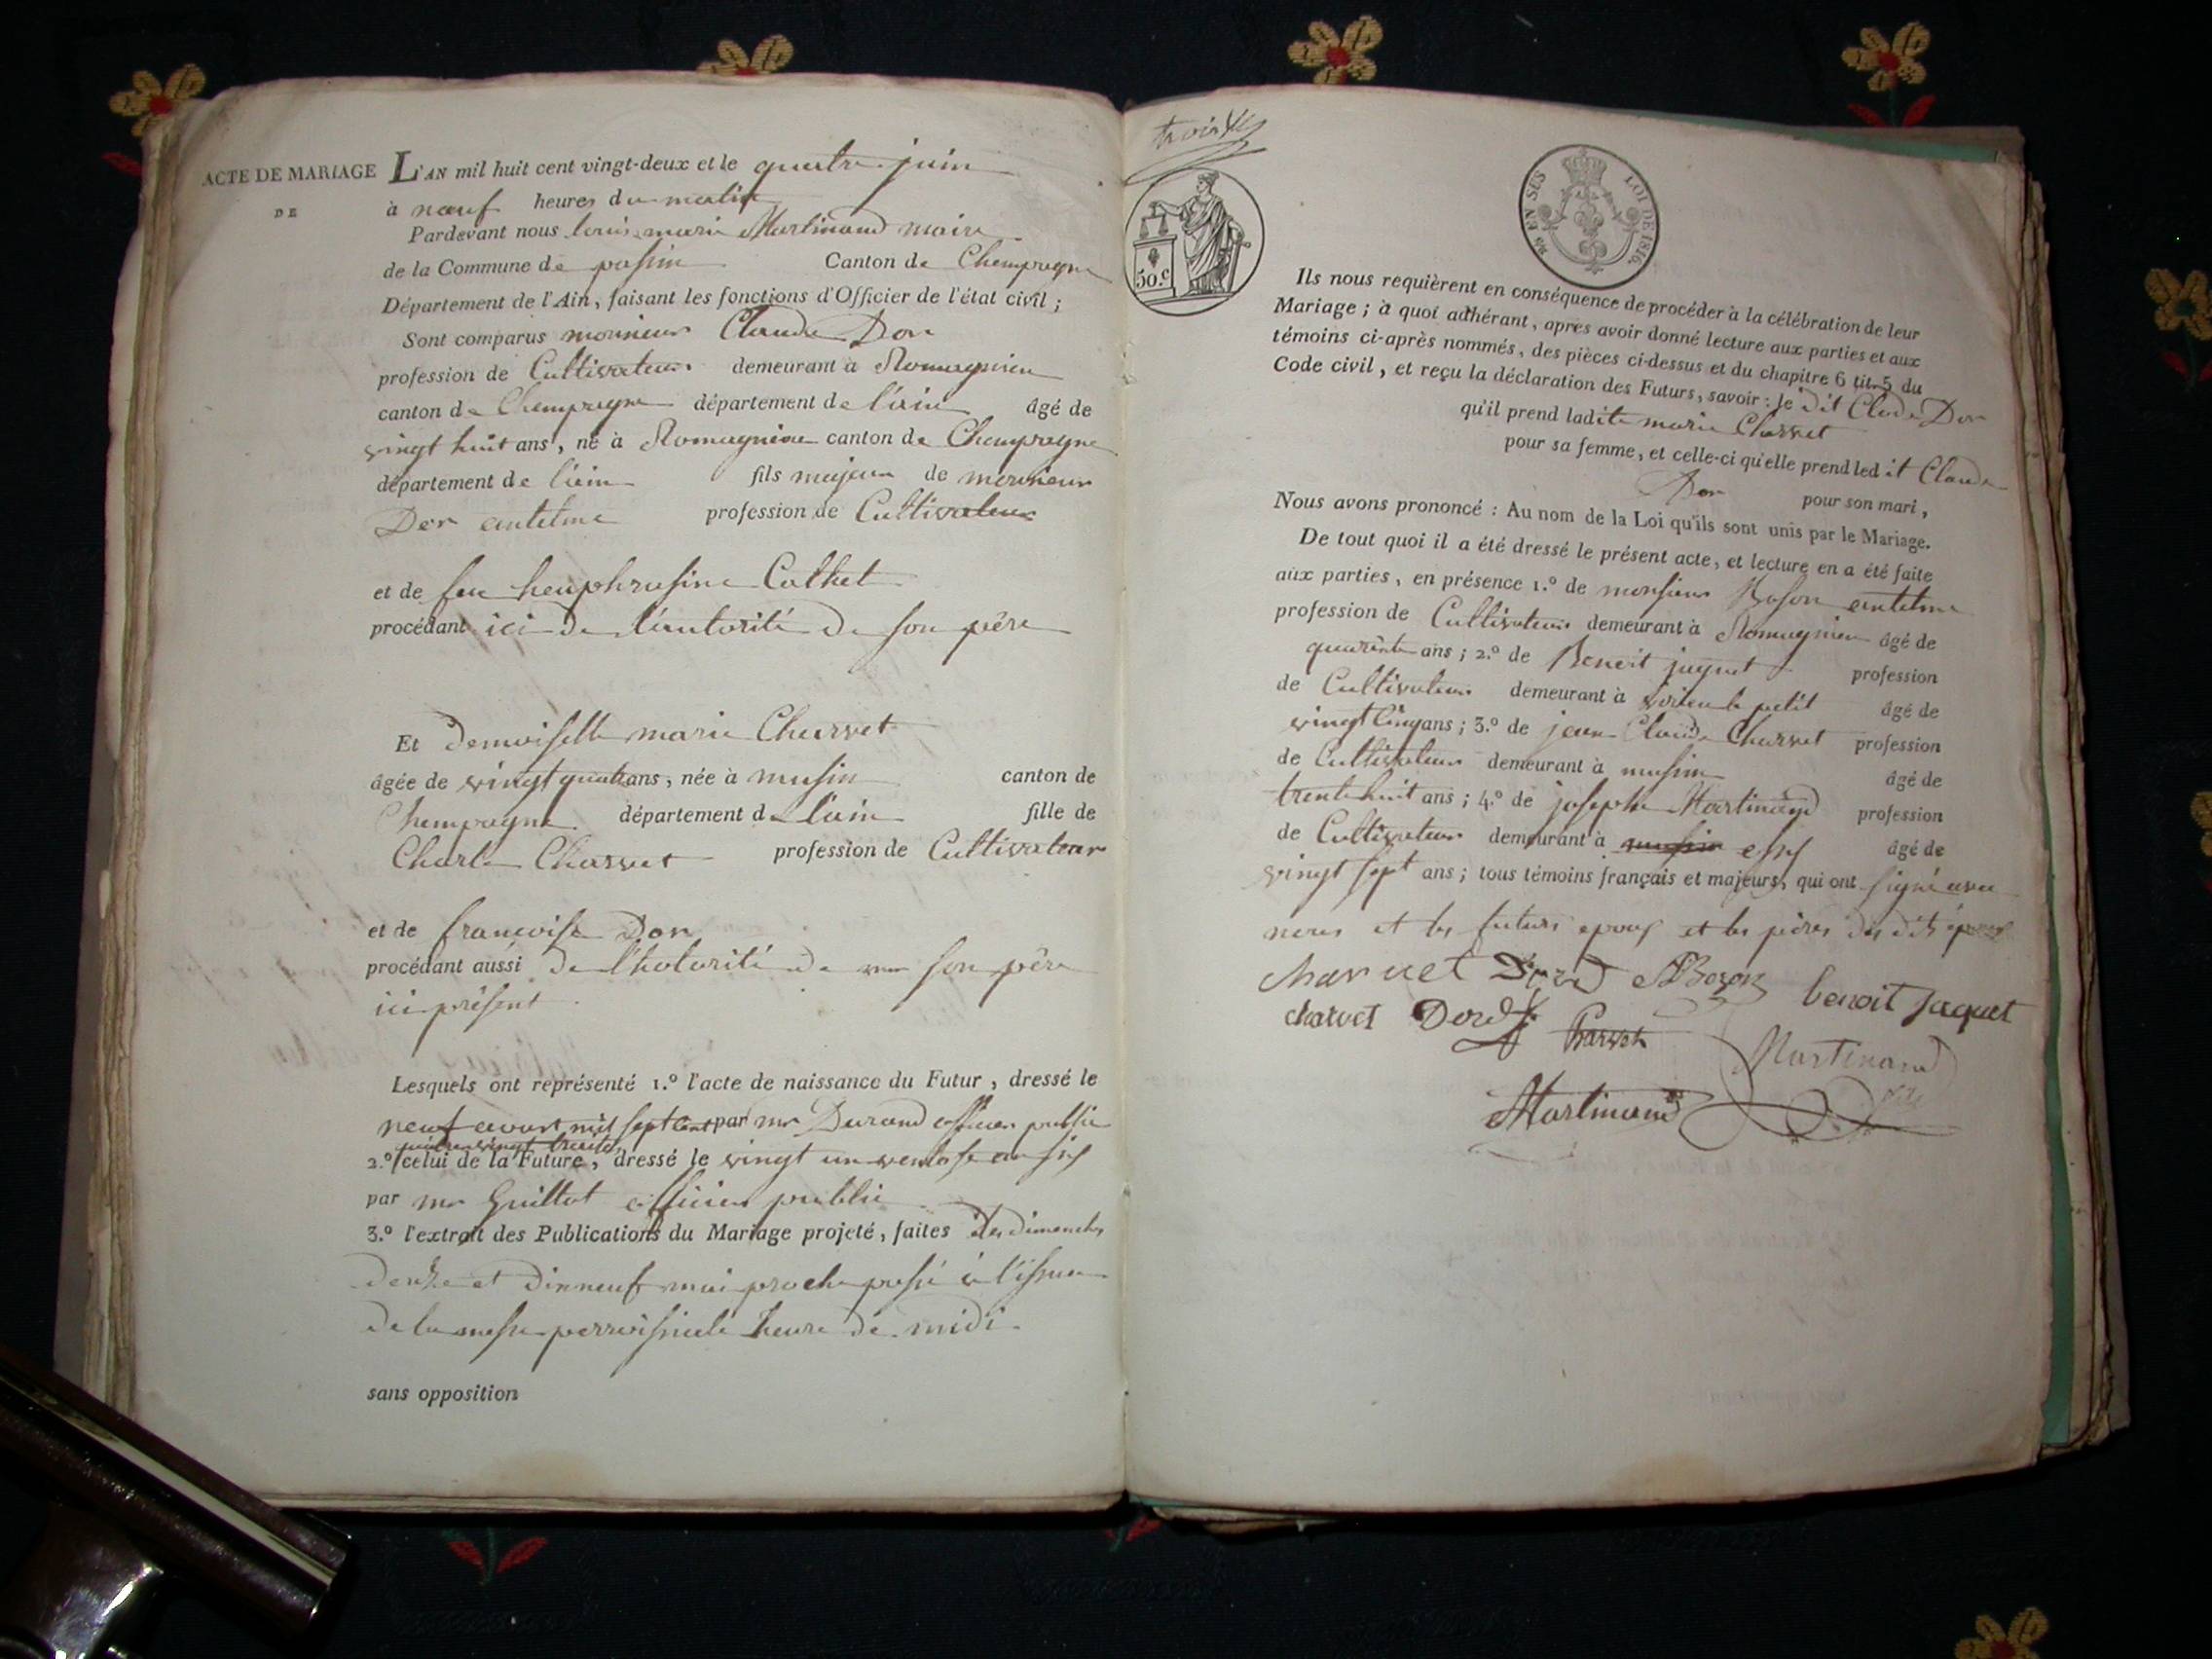 ACTE DE MARIAGE
DE
L'AN mil huit cent vingt-deux et le quatre juin
à nœuf heures du matin
Pardevant nous louis marie Martinand maire
de la Commune de Canton de Champagne
Département de l'Ain, faisant les fonctions d'Officier de l'état civil ;
Sont comparus monsieur Claude Dor
profession de Cultivateur demeurant à
canton de Champagne département de l'ain âgé de
vingt huit ans, né à canton de Champagne
département de l'ain fils majeur de monsieur
Dor antelme profession de Cultivateur
et de feu heuphrasine
procédant ici de l'autorité de son père
Et demoiselle marie Charvet
âgée de vingt quatre ans, née à musin canton de
Champagne département de l'ain fille de
Charle Charvet profession de Cultivateur
et de francoise Dor
procédant aussi de l'hotorité de son père
ici présent
Lesquels ont représenté 1.º l'acte de naissance du Futur, dressé le
neuf avout mil sept cent par mr Durand officier public
quatre vingt treize
2.º celui de la Future, dressé le vingt un ventose an six
par mr Guillot officier public
3.º l'extrait des Publications du Mariage projeté, faites les dimanches
douze et dinneuf mai proche passé à l'issue
de la messe parroissiale heure de midi
sans opposition
trois
50.c
EN SUS
LOI DE 1816.
Ils nous requièrent en conséquence de procéder à la célébration de leur
Mariage ; à quoi adhérant, après avoir donné lecture aux parties et aux
témoins ci-après nommés, des pièces ci-dessus et du chapitre 6 tit. 5 du
Code civil, et reçu la déclaration des Futurs, savoir : le dit Clode Dor
qu'il prend ladite marie Charvet
pour sa femme, et celle-ci qu'elle prend led it Claude
Dor pour son mari,
Nous avons prononcé : Au nom de la Loi qu'ils sont unis par le Mariage.
De tout quoi il a été dressé le présent acte, et lecture en a été faite
aux parties, en présence 1.º de monsieur Boson antelme
profession de Cultivateur demeurant à âgé de
quarante ans ; 2.º de Benoit jaquet profession
de Cultivateur demeurant à virieu le petit âgé de
vingt cinq ans ; 3.º de jean Claude Charvet profession
de Cultivateur demeurant à musin âgé de
trente huit ans ; 4.º de josephe Martinand profession
de Cultivateur demeurant à musin âgé de
vingt sept ans ; tous témoins français et majeurs, qui ont signé avec
nous et les futurs epoux et les pères des dits époux
charvet Dord ABozon benoit jaquet
charvet Dord Charvet
Martinand
Martinand